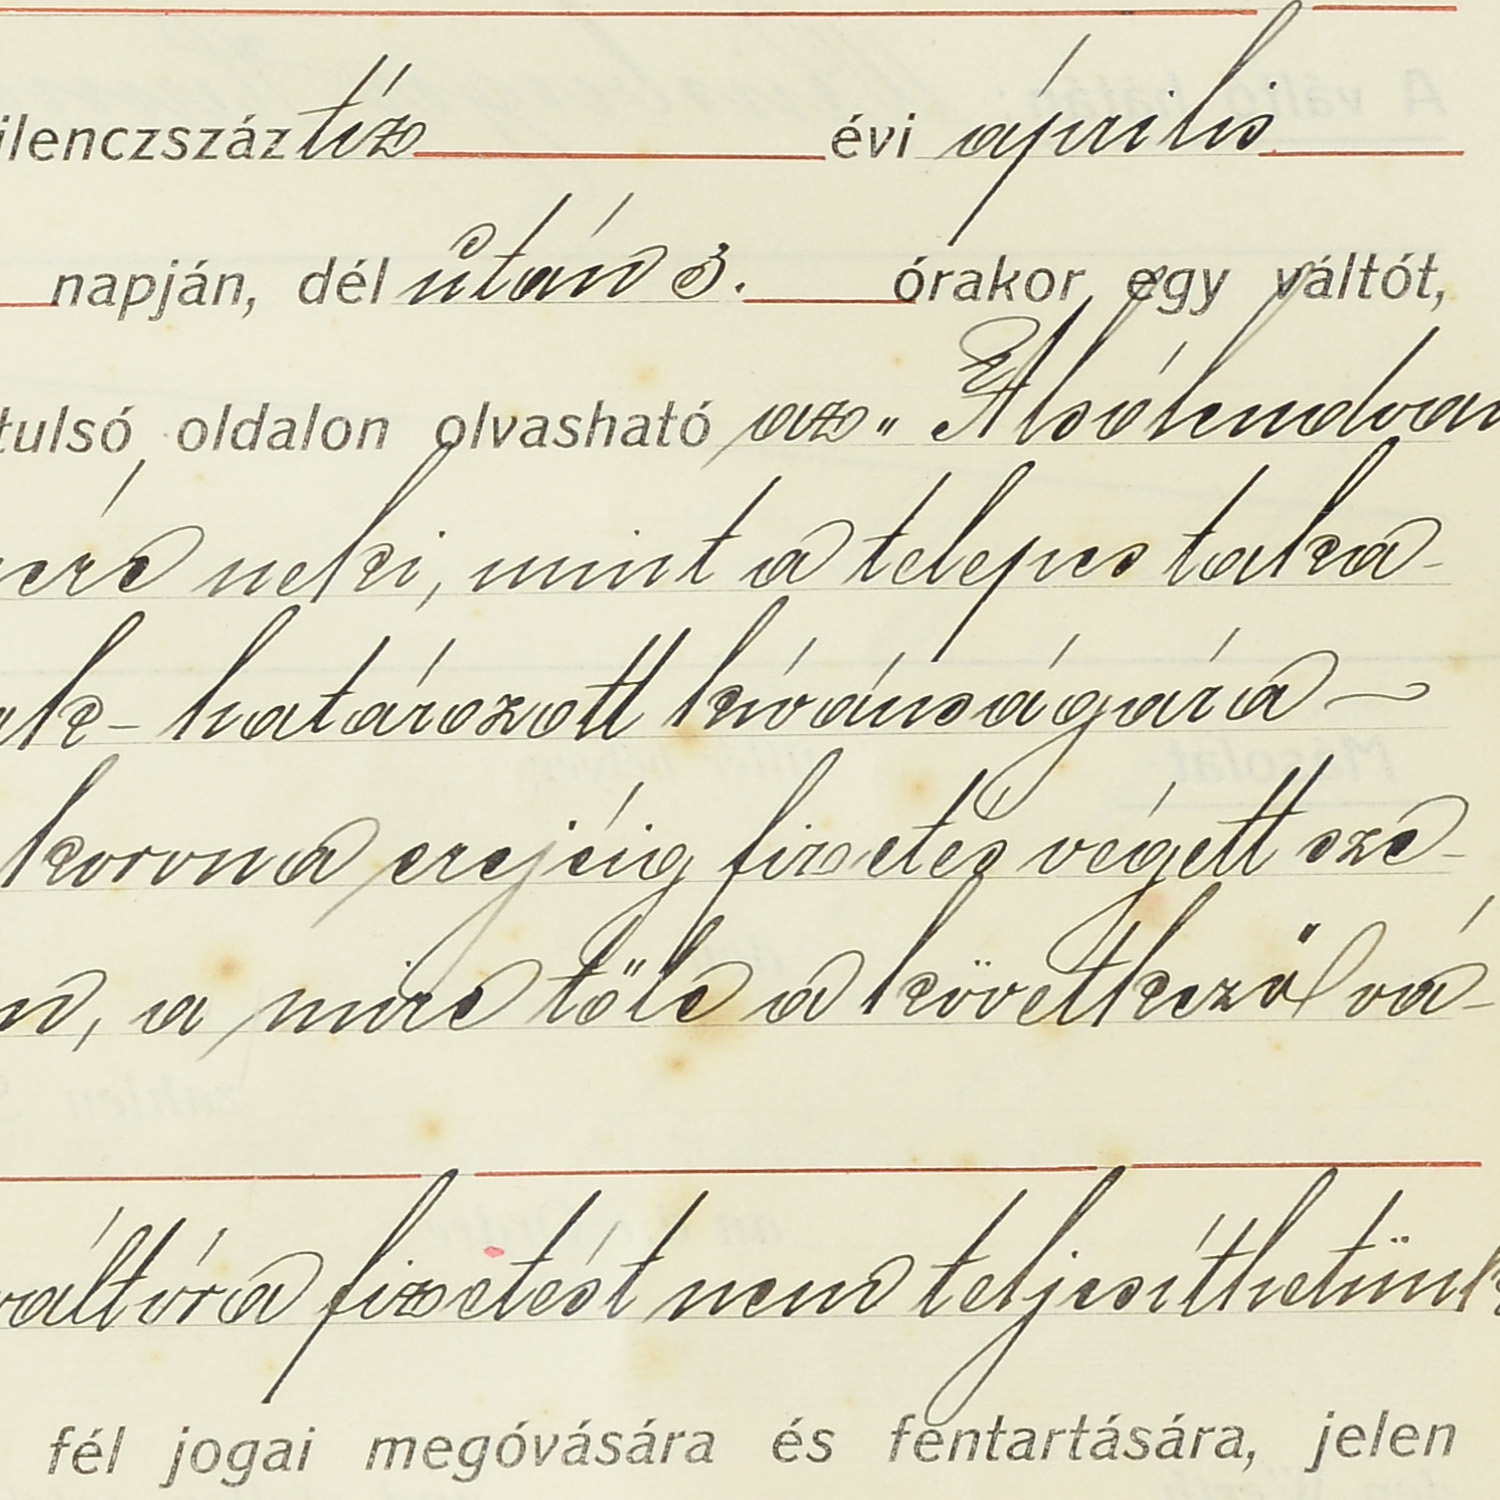 ilenczszáztíz évi április
napján, dél után 3. órakor egy váltót,
tulsó oldalon olvasható az „Alsólendvai
neki, mint a telepes taka-
határozott kívánságára
korona erejéig fizetés végett sze-
a mire tőle a következő vá-
váltóra fizetést nem teljesíthetünk
fél jogai megóvására és fentartására, jelen